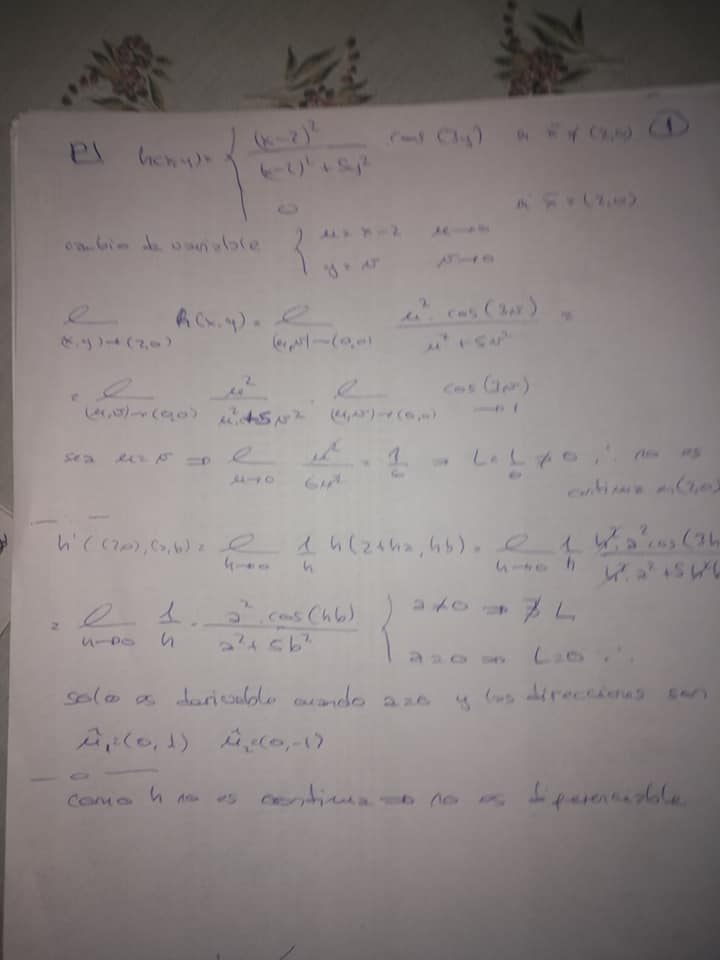 P1 h(x,y) = { (x-2)² / ((x-2)² + 5y²) cos(3y) si x̄ ≠ (2,0) ①
0 si x̄ = (2,0)
cambio de variable { u = x-2 u→0
y = v v→0
l (x,y)→(2,0) h(x,y) = l (u,v)→(0,0) u² · cos(3v) / (u² + 5v²) =
= l (u,v)→(0,0) u² / (u² + 5v²) · l (u,v)→(0,0) cos(3v) →1
sea u=v ⇒ l u→0 u² / 6u² = 1/6 ⇒ L = 1/6 ≠ 0 ∴ no es
continua en (2,0)
h'((2,0),(a,b)) = l h→0 1/h h(2+ha, hb) = l h→0 1/h h² · a² cos(3h / h² · a² + 5h²b
= l h→0 1/h · a² · cos(hb) / (a² + 5b²) { a≠0 ⇒ ∄ L
a=0 ⇒ L=0 ∴
solo es derivable cuando a=0 y las direcciones son
û₁=(0,1) û₂=(0,-1)
como h no es continua ⇒ no es diferenciable